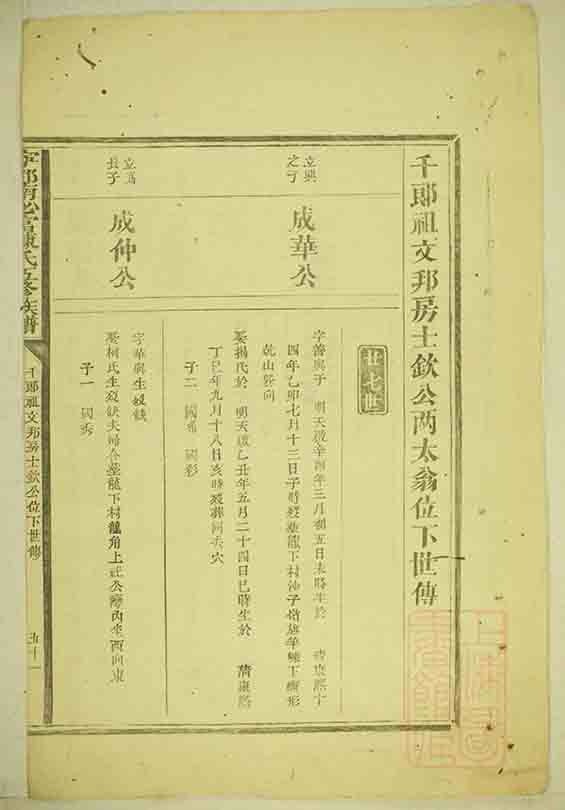 千郎祖文邦房士欽公两太翁位下世傳
廿七世
立興之子
成華公
字善與子 明天啟辛酉年三月初五日未時生於 清康熙十
四年乙卯七月十三日子時歿葬龍下村沙子
乾山巽向
娶楊氏於 明天啟乙丑年五月二十四日巳時生於 清康熙
丁巳年九月十八日亥時歿葬同夫穴
子二 國 國彩
立 長子
成仲公
字華與生歿缺
娶柯氏生歿缺夫婦合墓龍下村龍角上 公 內坐酉向東
子一 國秀
氏 族譜
千郎祖文邦房士欽公位下世傳
五十一
上 圖